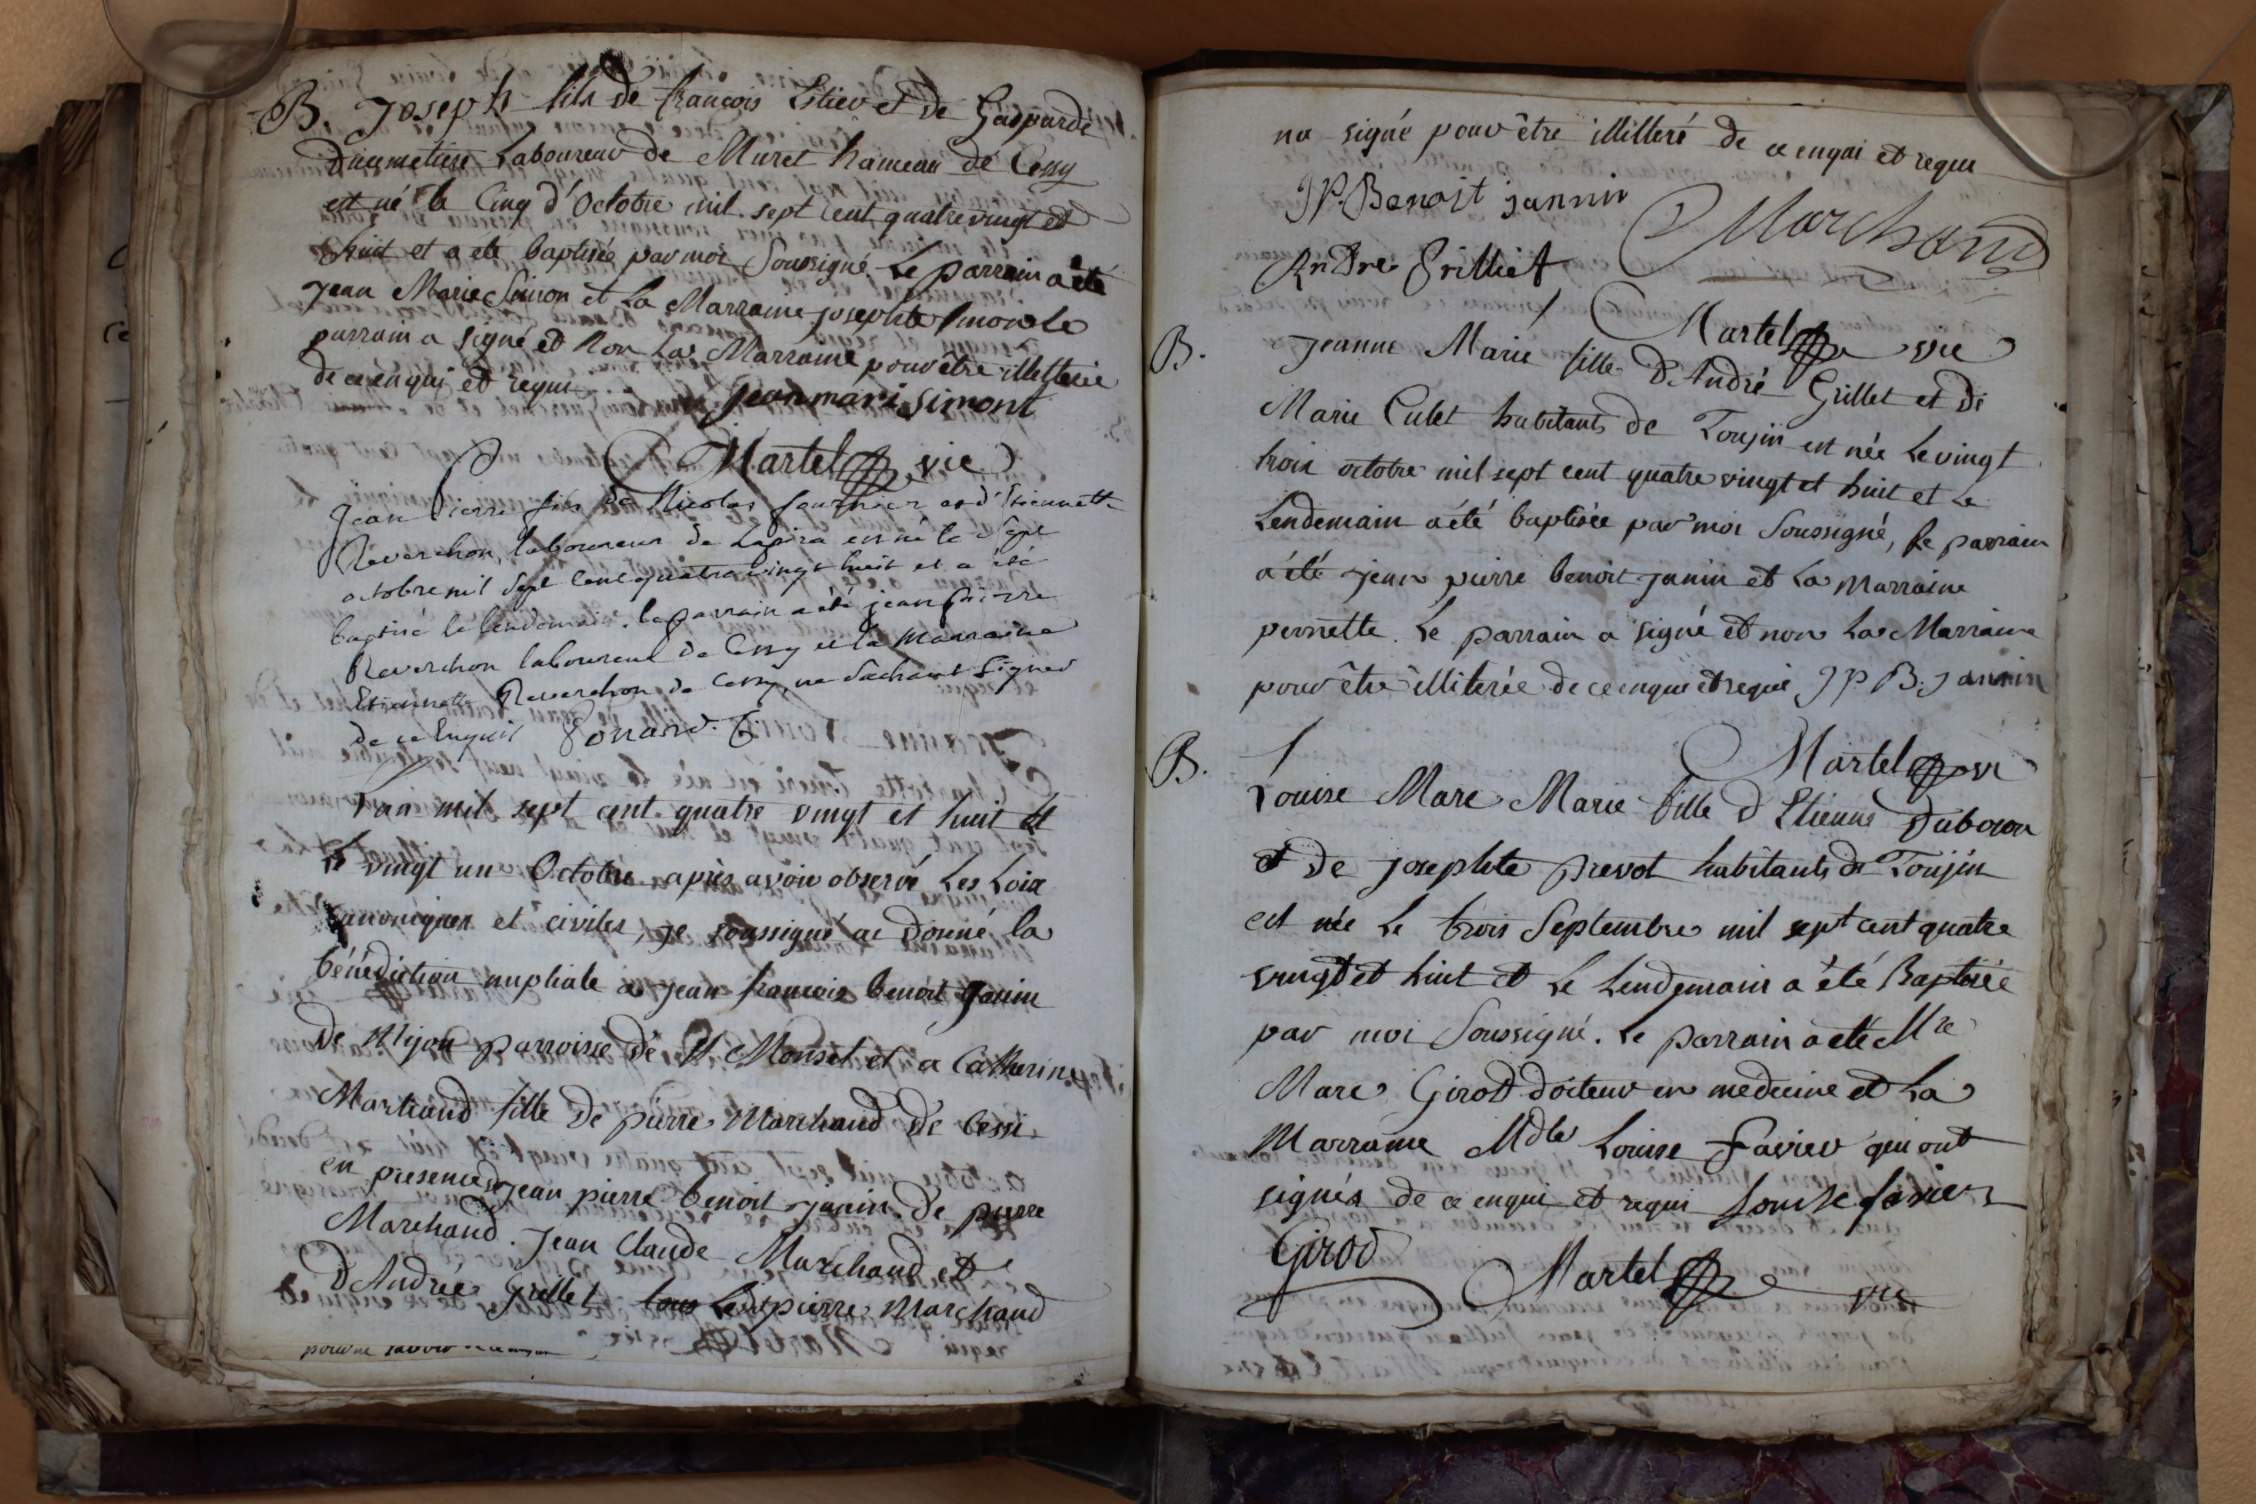 B. Joseph fils de françois Estier et de Gasparde
Ducimetiere Laboureur de Muret hameau de Cessy
est né le Cinq d'Octobre mil sept cent quatre vingt et
huit et a eté baptisée par moi Soussigné Le parrain a été
Jean Marie Simon et La Marraine josephte Simon le
parrain a signé et Non La Marraine pour être illetterée
de ce enqui et requi
jean mari simont
Martel vic
Jean Pierre fils de Nicolas fournier et d'Etiennette
Reverchon, laboureur de est né le Sept
octobre mil Sept Cent quatre vingt huit et a été
baptisé le lendemain. le parrain a été jean pierre
Reverchon laboureur de Cessy et la Marraine
Etiennette Reverchon de Cessy, ne Sachant Signer
de ce Enquis
L'an mil sept cent quatre vingt et huit et
le vingt un Octobre après avoir observé Les Loix
canoniques et civiles, je soussigné ai donné la
bénédiction nuptiale a jean françois benoit Janin
de Mijou parroisse de et a Catherine
Martiand fille de pierre Marchand de Cessi
en presence de jean pierre benoit janin. de pierre
Marchand. Jean Claude Marchand et
d'Andrée Grillet pierre Marchand
na signé pour être illitteré de ce enqui et requi
JP. Benoit jannin
Marchand
Andre Grilliet
Martel vic
B. Jeanne Marie fille d'André Grillet et de
Marie Culet habitants de Toujin est née Le vingt
trois octobre mil sept cent quatre vingt et huit et Le
Lendemain a été baptisée par moi Soussigné, Le parrain
a été jean pierre benoit janin et La Marraine
pernette. Le parrain a signé et non La Marraine
pour être illiterée de ce enqui et requi J P B. Jannin
Martel vi
B. Louise Marc Marie fille d'Etienne
et de josephte prevot habitants de Toujin
est née Le trois Septembre mil sept cent quatre
vingt et huit et Le Lendemain a été Baptisée
par moi Soussigné. Le parrain a eté Mre
Marc Girod docteur en medecine et La
Marraine Mdle Louise favier qui ont
signés de ce enqui et requi Louise favier
Girod
Martel vic